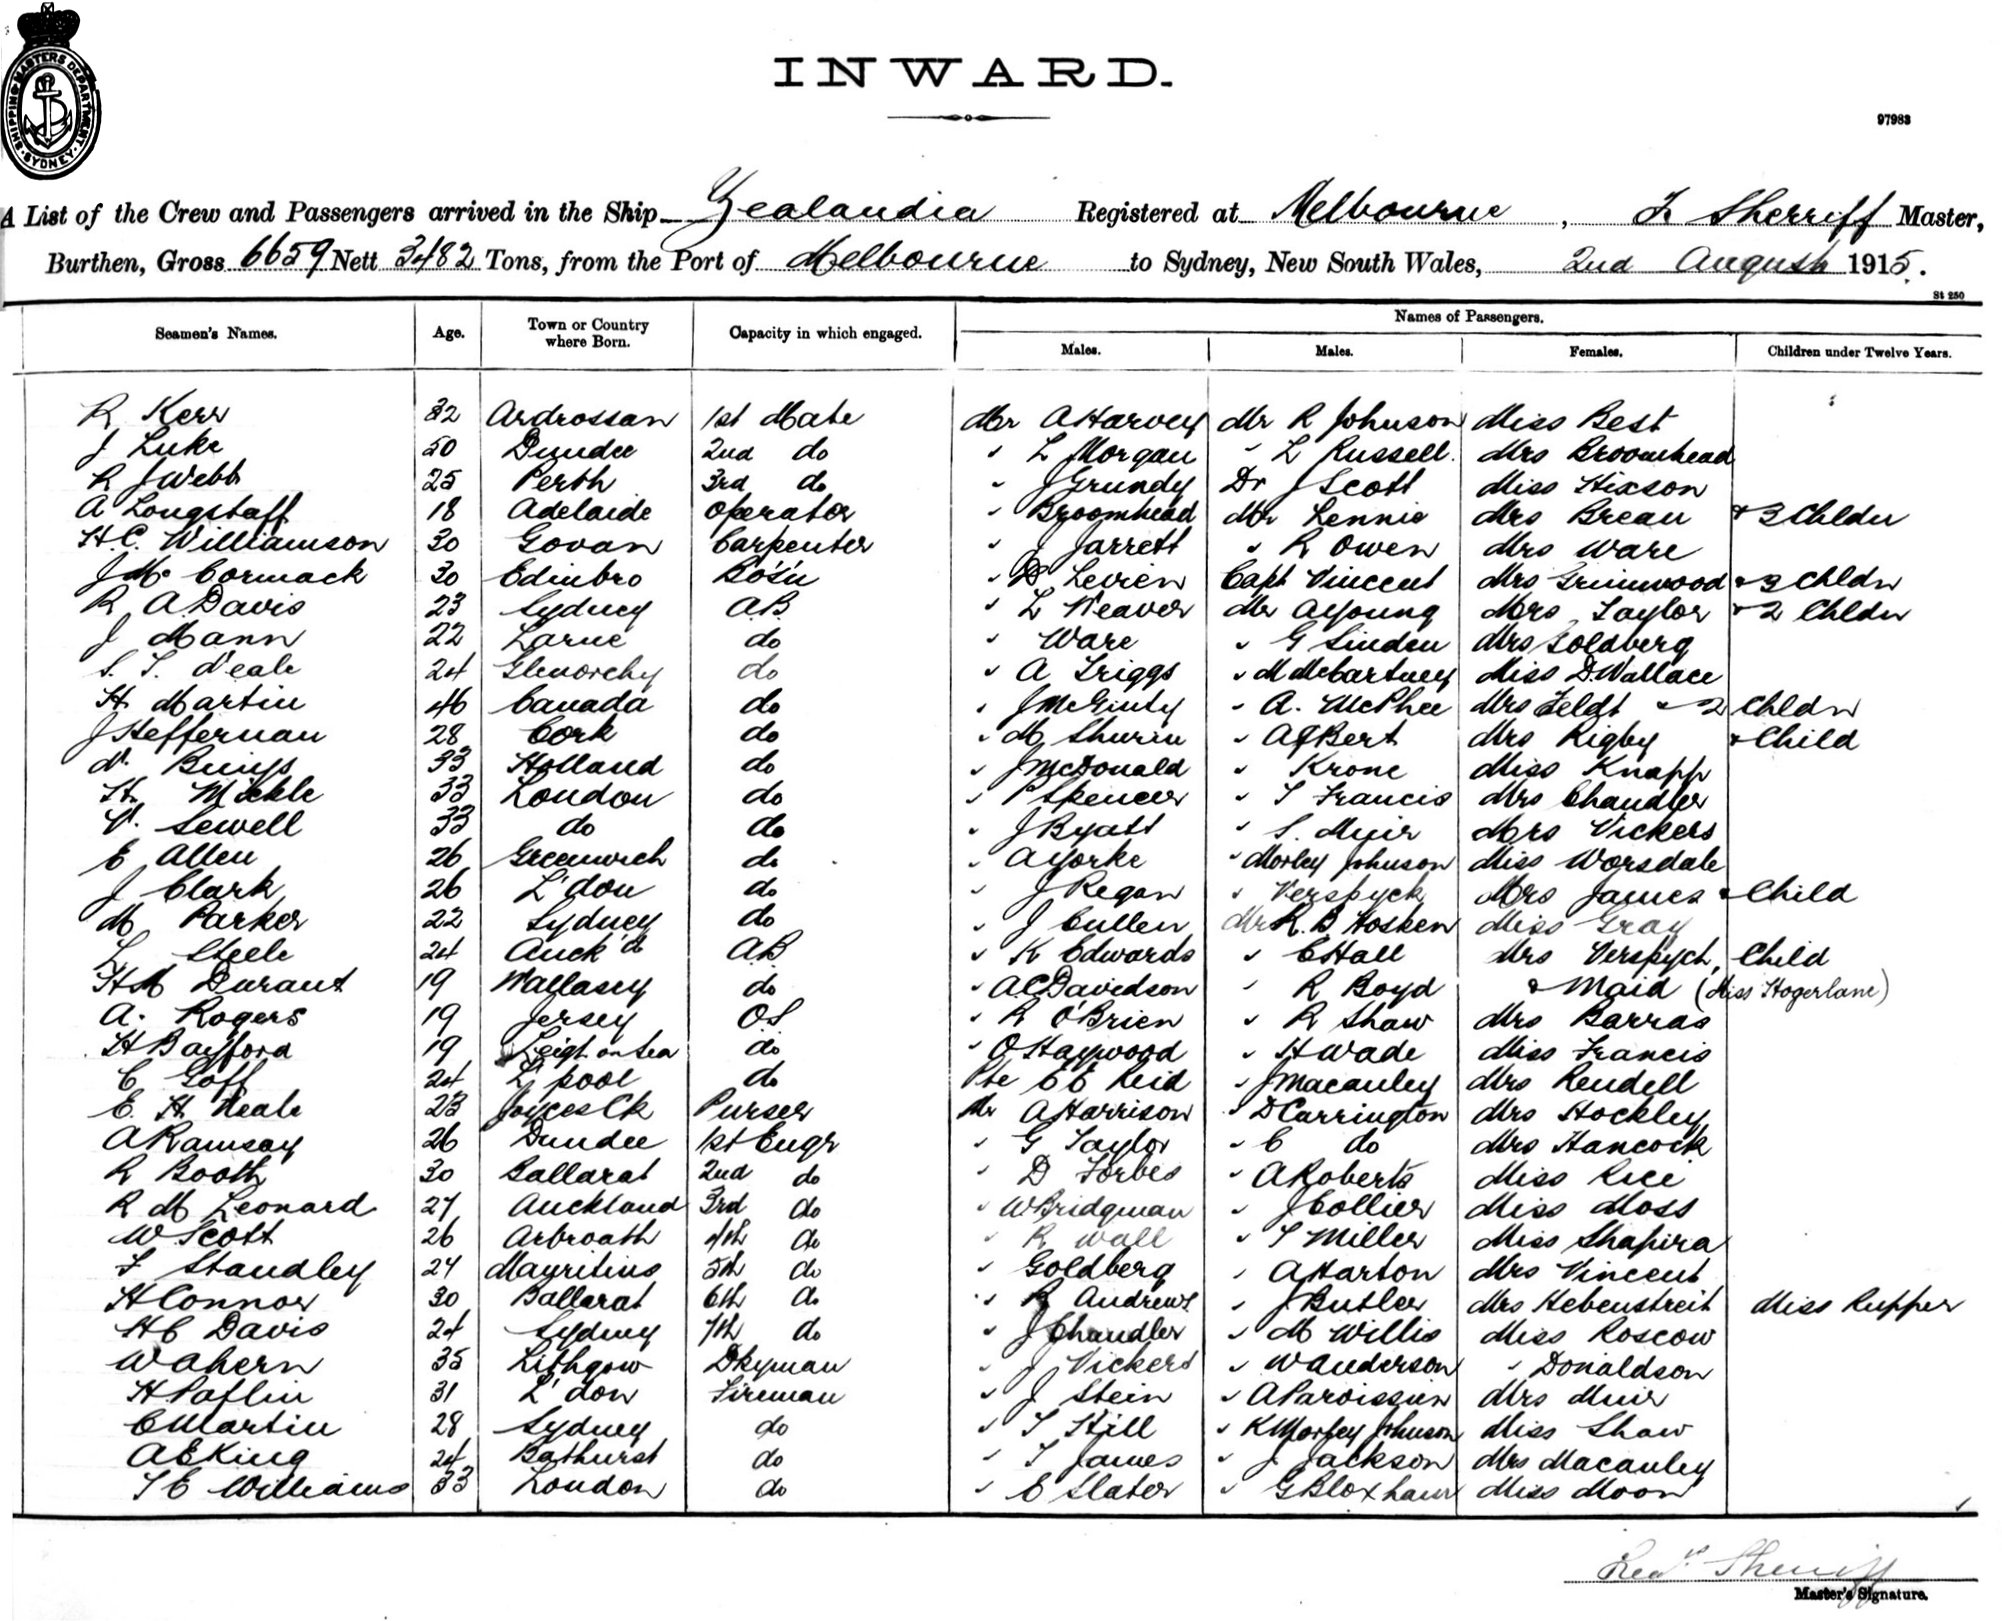 SHIPPING MASTERS DEPARTMENT. SYDNEY.
INWARD.
97983
A List of the Crew and Passengers arrived in the Ship Zealandia Registered at Melbourne, F Sherriff Master,
Burthen, Gross 6659 Nett 3482 Tons, from the Port of Melbourne to Sydney, New South Wales, 2nd August 1915.
St 250
Seamen's Names. Age. Town or Country where Born. Capacity in which engaged. Names of Passengers.
Males. Males. Females. Children under Twelve Years.
R Kerr 32 Ardrossan 1st Mate Mr A Harvey Mr R Johnson Miss Best
J Luke 50 Dundee 2nd do " L Morgan " L Russell. Mrs Broomhead
R J Webb 25 Perth 3rd do " J Grundy Dr J Scott Miss Hixson
A Longstaff 18 Adelaide Operator " Broomhead Mr Lennie Mrs Brean & 3 Chldn
H.C. Williamson 30 Govan Carpenter " J Jarrett " R Owen Mrs Ware
J McCormack 30 Edinbro Bo's'n " D Levien Capt Vincent Mrs Grimwood & 3 Chldn
R A Davis 23 Sydney AB " L Weaver Mr A Young Mrs Taylor & 2 Chldn
J Mann 22 Larne do " Ware " G Linden Mrs Goldberg
S. T. Neale 24 Glenorchy do " A Triggs " M McCartney Miss D Wallace
H Martin 46 Canada do " J McGinty " A. McPhee Mrs Feldt & 2 Chldn
J Heffernan 28 Cork do " M Shurin " A J Bert Mrs Rigby & Child
33 Holland do " J McDonald " Krone Miss Knapp
H. Mickle 33 London do " P Spencer " T Francis Mrs Chandler
V. Sewell 33 do do " J Byatt " S. Muir Mrs Vickers
E Allen 26 Greenwich do " A Yorke " Morley Johnson Miss Worsdale
J Clark 26 L'don do " J Regan " Verspyck Mrs James & Child
M Parker 22 Sydney do " J Cullen Mr R. B Hosken Miss Gray
L Steele 24 Auck'd AB " K Edwards " C Hall Mrs Verspych, Child
H M Durant 19 Wallasey do " A C Davidson " R Boyd & Maid (Miss Hogerlane)
A. Rogers 19 Jersey OS " R O'Brien " R Shaw Mrs Barras
H Bayford 19 Leigh on Sea do " O Haywood " H Wade Miss Francis
C Goff 24 L'pool do Pte E E Reid " J Macauley Mrs Rendell
E. H. Neale 23 Joyces Ck Purser Mr A Harrison " D Carrington Mrs Hockley
A Ramsay 26 Dundee 1st Engr " G Taylor " C do Mrs Hancock
R Booth 30 Ballarat 2nd do " D Forbes " A Roberts Miss Rice
R M Leonard 27 Auckland 3rd do " W Bridgman " J Collier Miss Moss
W Scott 26 Arbroath 4th do " R Wall " T Miller Miss Shapira
F Standley 27 Mauritius 5th do " Goldberg " A Harton Mrs Vincent
H Connor 30 Ballarat 6th do " R Andrews " J Butler Mrs Hebenstreit Miss Rupper
H C Davis 24 Sydney 7th do " J Chandler " M Willis Miss Roscow
W Ahern 35 Lithgow Dkyman " J Vickers " W Anderson " Donaldson
H Paflin 31 L'don Fireman " J Stein " A Paroissien Mrs Muir
C Martin 28 Sydney do " T Hill " K Morley Johnson Miss Shaw
A E King 24 Bathurst do " T James " J Jackson Mrs Macauley
T E Williams 33 London do " C Slater " G Bloxham Miss Moon
Fred Sherriff
Master's Signature.